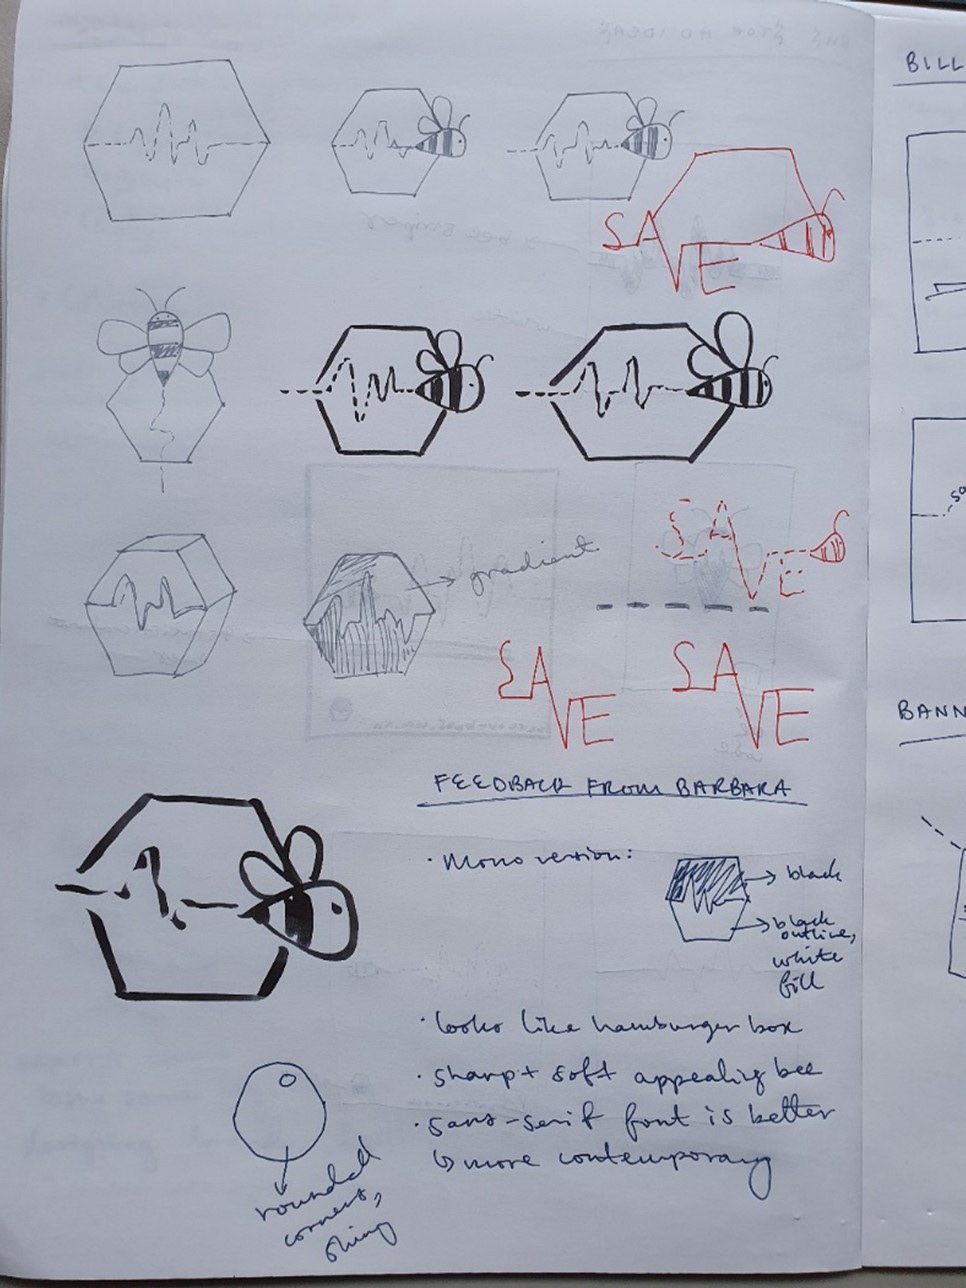 BILL
SAVE
gradient
SAVE
SAVE
SAVE
BANN
FEEDBACK FROM BARBARA
· Mono version:
black
black
outline,
white
fill
· looks like hamburger box
· sharp + soft appealing bee
· sans-serif font is better
↳ more contemporary
rounded
corners,
shiny